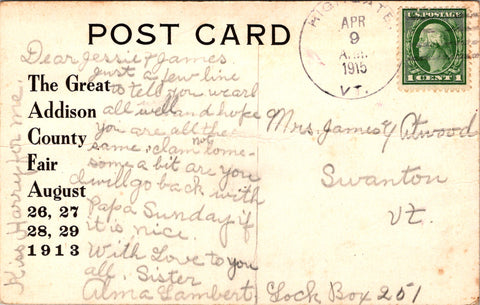 POST CARD
HIGHGATE
APR
9
A.M.
1915
VT.
U.S. POSTAGE
1 CENT 1
The Great
Addison
County
Fair
August
26, 27
28, 29
1913
Dear Jessie & James.
just a few line
to tell you we arl
all well and hope
you are all the
same. alam lome-
not
some a bit are you
I will go back with
Papa Sunday if
it is nice.
With Love to you
all. Sister
Alma Lambert.
Kiss Harry for me.
Mrs. James Atwood
Swanton
Vt.
Lock Box 251